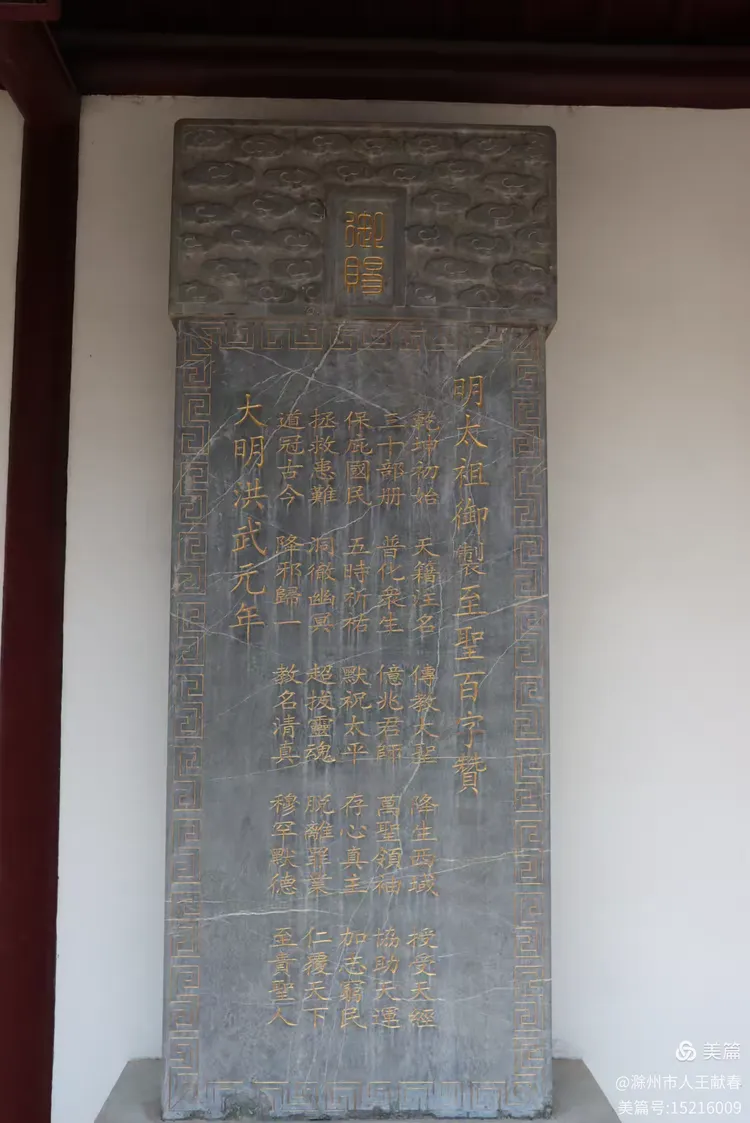 御賜
明太祖御製至聖百字贊
乾坤初始 天籍注名 傳教大聖 降生西域 授受天經
三十部册 普化衆生 億兆君師 萬聖領袖 協助天運
保庇國民 五時祈祐 默祝太平 存心真主 加志窮民
拯救患難 洞徹幽冥 超拔靈魂 脱離罪業 仁覆天下
道冠古今 降邪歸一 教名清真 穆罕默德 至貴聖人
大明洪武元年
美篇
@滁州市人王献春
美篇号:15216009